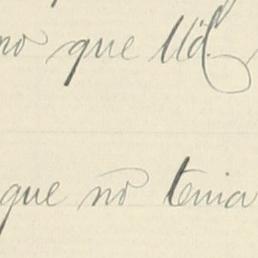 no que Ud.
que no tenia